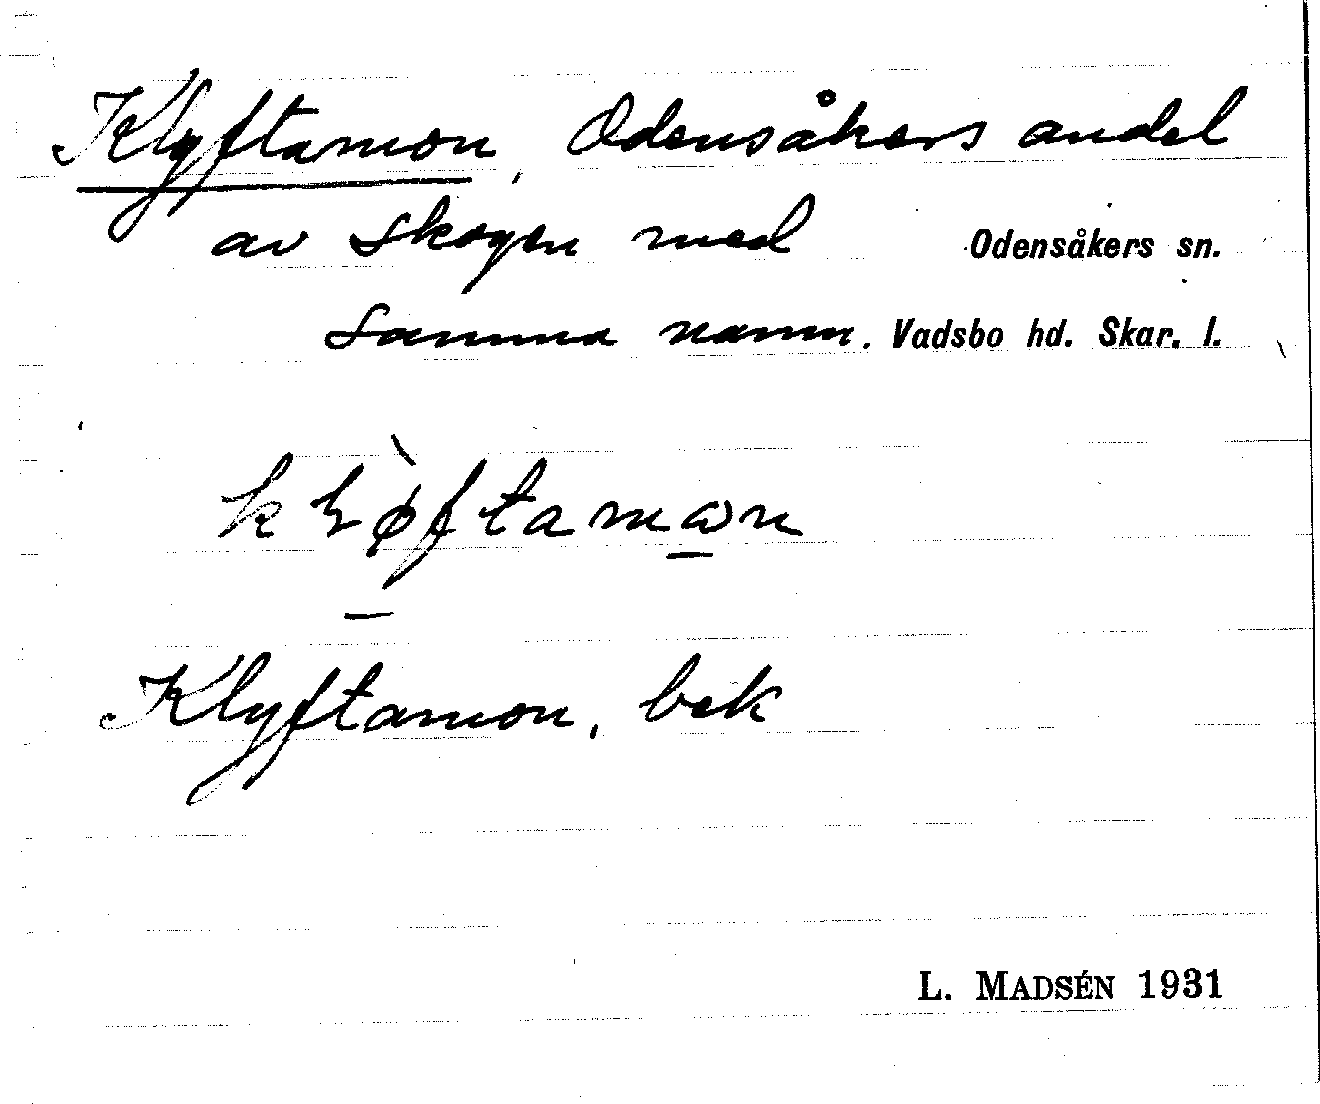 Klyftamon, Odensåkers andel
av skogen med Odensåkers sn.
samma namn. Vadsbo hd. Skar. l.
Klyftamon, bek
L. MADSÉN 1931